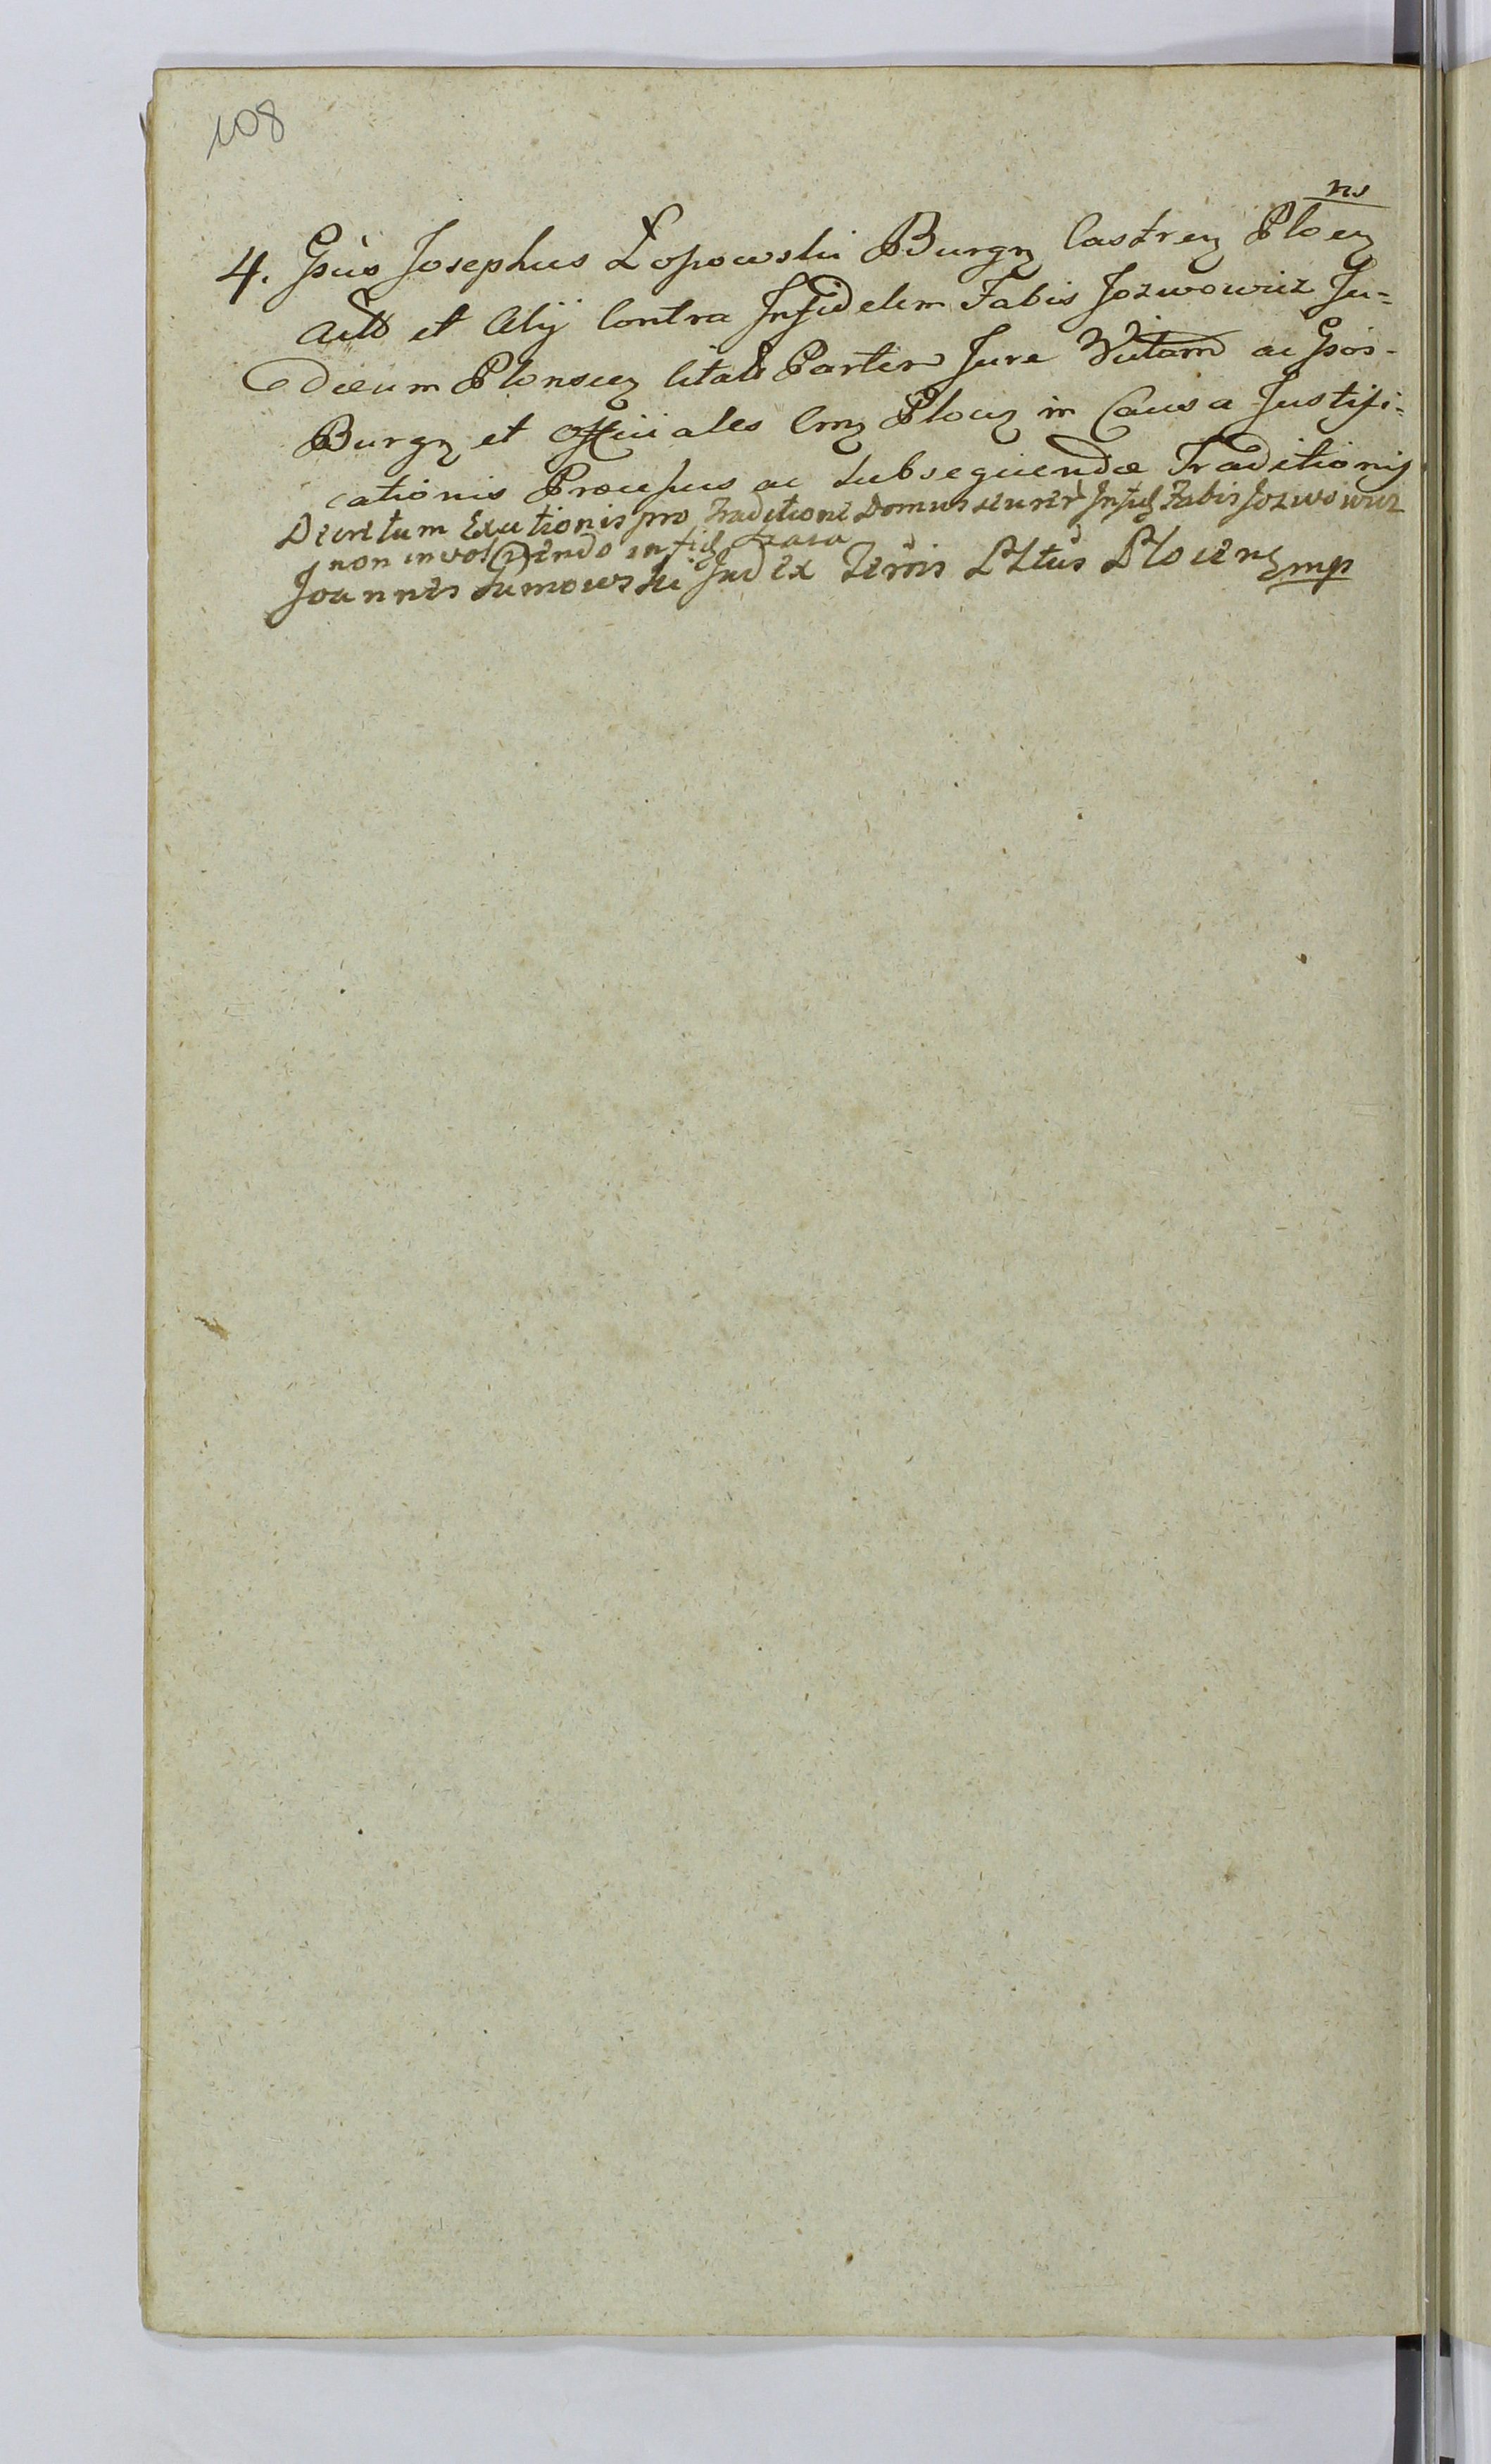 108
ns
4. Gsus Josephus Łopowski Burgz Castrenz Plocz
Actt et Alij Contra Infidelem Fabis Jozwowicz Ju=
dæum Plonscz Citatt Partes Jure Victam ac Gsos-
Burgz et Officiales Cnrz Plocz in Causa Justifi=
cationis Præcisus ac subsequendæ Traditionis
Decretum Exutionis pro Traditione Domus Infid Fabis Jozwowicz
non involvendo infid
Joannes Sumowski Judex Terris Plocens mp